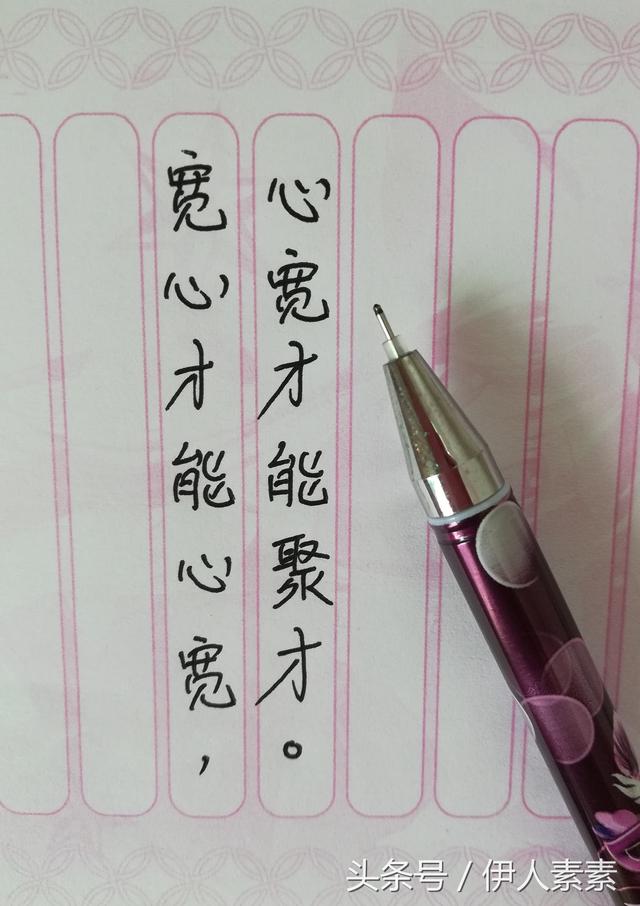 宽心才能心宽，
心宽才能聚才。
头条号／伊人素素